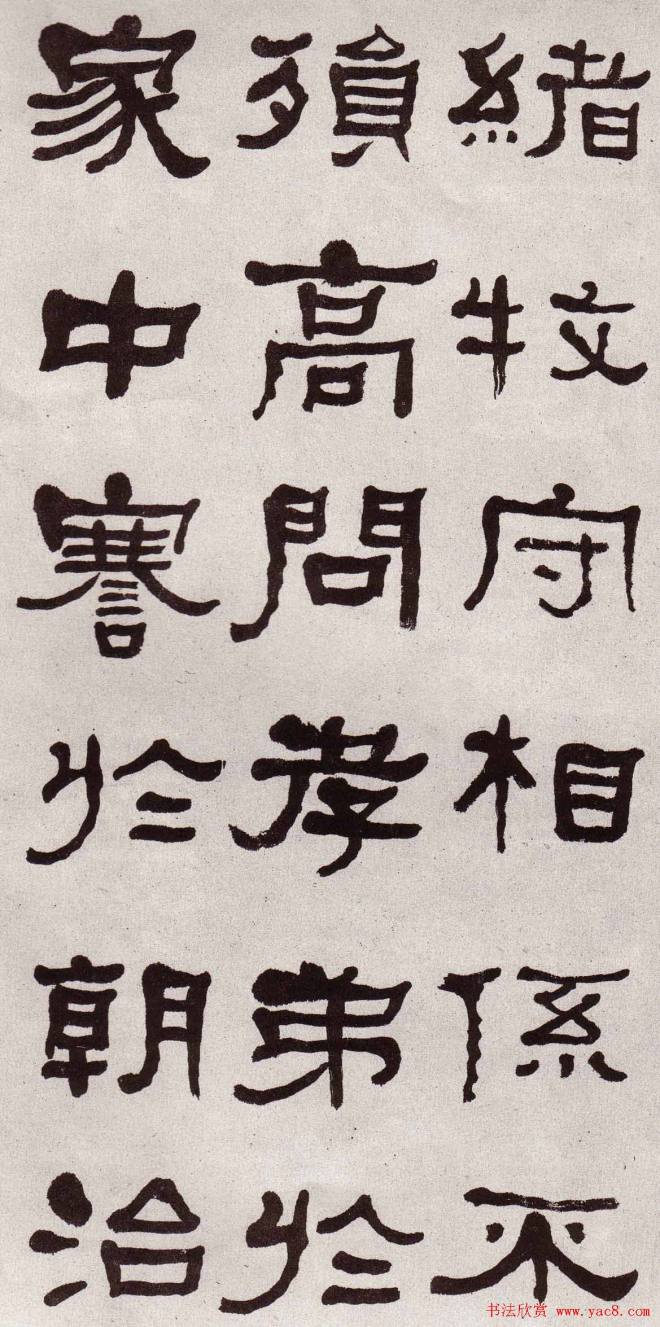 緒牧守相係不
殞高問孝弟於
家中謇於朝治
书法欣赏 www.yac8.com